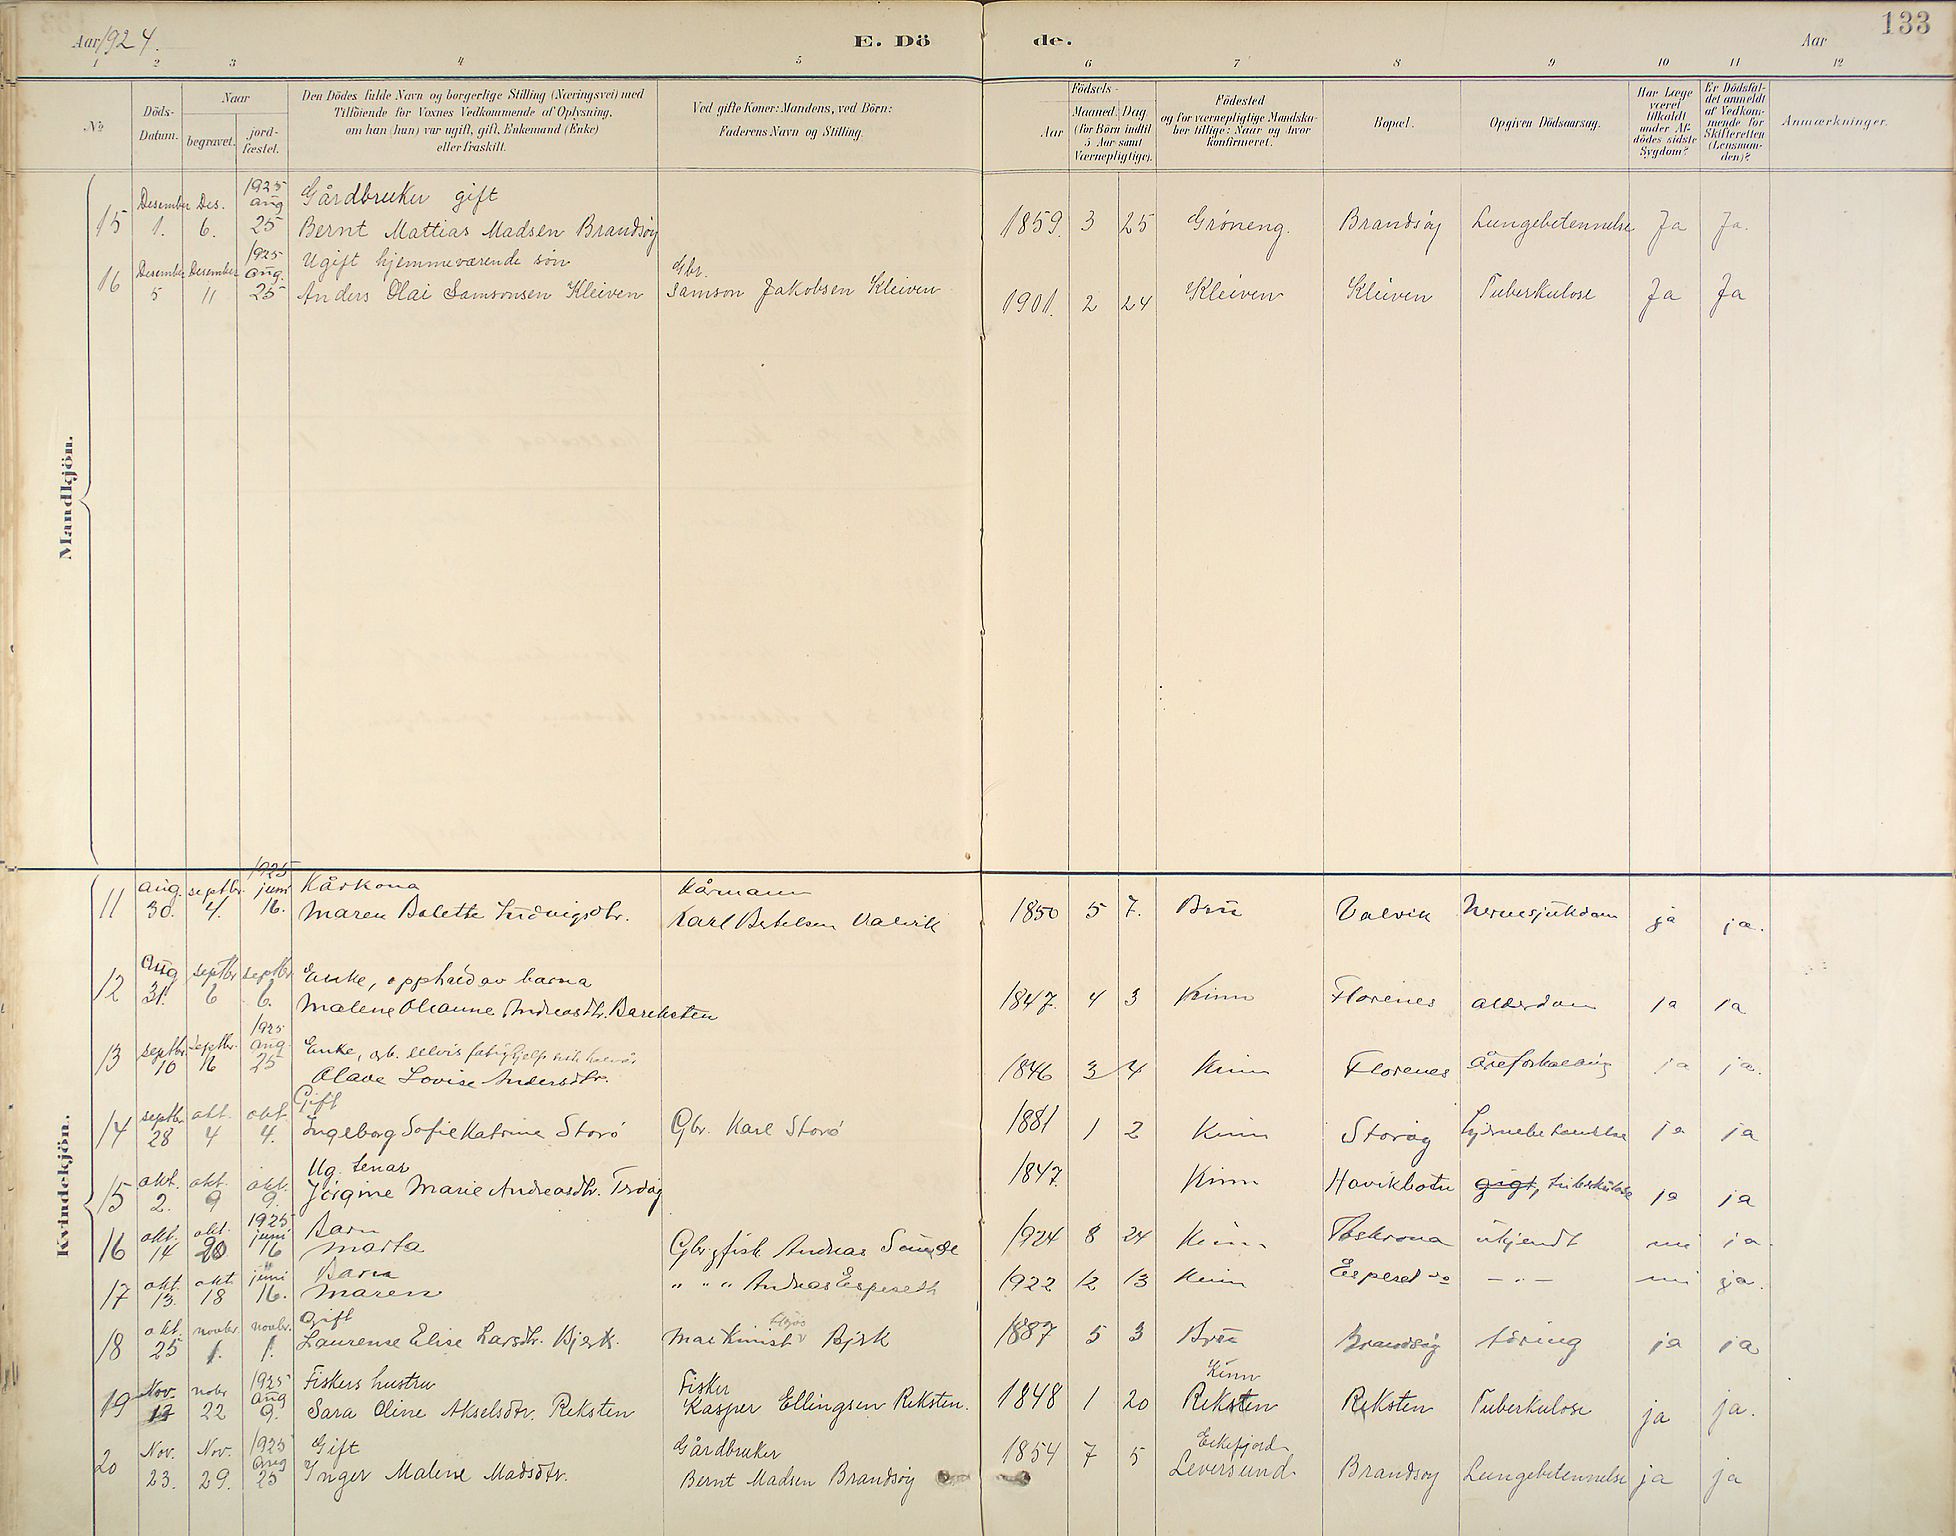 Aar 1924.
E. Dö
de.
Aar
133
1 2 3 4 5 6 7 8 9 10 11 12
No
Döds-
Datum.
Naar
begravet.
jord-
fæstet.
Den Dödes fulde Navn og borgerlige Stilling (Næringsvei) med
Tilföiende for Voxnes Vedkommende af Oplysning,
om han (hun) var ugift, gift, Enkemand (Enke)
eller fraskilt.
Ved gifte Koner: Mandens, ved Börn:
Faderens Navn og Stilling.
Födsels-
Aar
Maaned. Dag
(for Börn indtil
5 Aar samt
Værnepligtige).
Födested
og for værnepligtige Mandska-
ber tillige: Naar og hvor
konfirmeret.
Bopæl.
Opgiven Dödsaarsag.
Har Læge
været
tilkaldt
under Af-
dödes sidste
Sygdom?
Er Dödsfal-
det anmeldt
af Vedkom-
mende for
Skifteretten
(Lensman-
den)?
Anmærkninger.
Mandkjön.
Desember Des. 1925 aug Gårdbruker gift
15 1. 6. 25 Bernt Mattias Madsen Brandsöy 1859. 3 25 Gröneng. Brandsöy Lungebetennelse Ja Ja.
Desember Desember 1925 aug. Ugift hjemmeværende sön Gbr.
16 5 11 25 Anders Olai Samsonsen Kleiven Samson Jakobsen Kleiven 1901. 2 24 Kleiven Kleiven Tuberkulose Ja Ja
Kvindekjön.
aug. septbr. 1925 juni Kårkona Kårmann
11 30. 4. 16. Maren Bolette Ludvigsdtr. Karl Betelsen Valvik 1850 5 7. Brü Valvik Nervesjukdom ja ja.
aug septbr septbr. Enke, opphald av barna
12 31. 6 6. Malene Oleanne Andreasdtr. Bareksten 1847. 4 3 Kinn Florenes alderdom ja ja
septbr. septbr. 1925 aug. Enke,
13 10 16 25 Olave Lovise Andersdtr. 1846 3 4 Kinn Florenes åreforkalking ja ja.
septbr. okt. okt. Gift
14 28 4 4. Ingeborg Sofie Katrine Storö Gbr. Karl Storö 1881 1 2 Kinn Storöy hjernebetennelse ja ja
okt. okt. okt. Ug. tenar
15 2. 9 9. Jörgine Marie Andreasdtr. Trööy 1847. Kinn Havikbotn gigt, tuberkulose ja ja
okt. okt. 1925 juni Barn
16 14 20 16 Marta Gbr og fisk Andreas Sunde 1924 8 24 Kinn ukjendt nei ja.
okt. okt. juni Barn
17 13. 18 16. Maren " " " Andreas Espeseth 1922 12 13 Kinn Espeset — " — nei ja.
okt. novbr. novbr. Gift
18 25 1. 1. Laurense Elise Larsdtr. Bjerk. Maskinist Bjerk 1887 5 3 Bru Brandsöy töring ja ja
Nov. nobr 1925 aug Fiskers hustru Fisker Kinn
19 22 9. Sara Oline Akselsdtr. Reksten Kasper Ellingsen Reksten. 1848 1 20 Reksten Reksten Tuberkulose ja ja.
Nov. Nov. 1925 aug Gift Gårdbruker Eikefjord
20 23. 29. 25 Inger Malene Madsdtr. Bernt Madsen Brandsöy 1854 7 5 Leversund Brandsöy Lungebetennelse ja ja